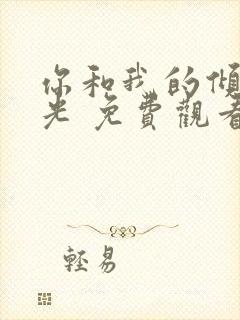 你和我的傾
光 免費觀看
輕易